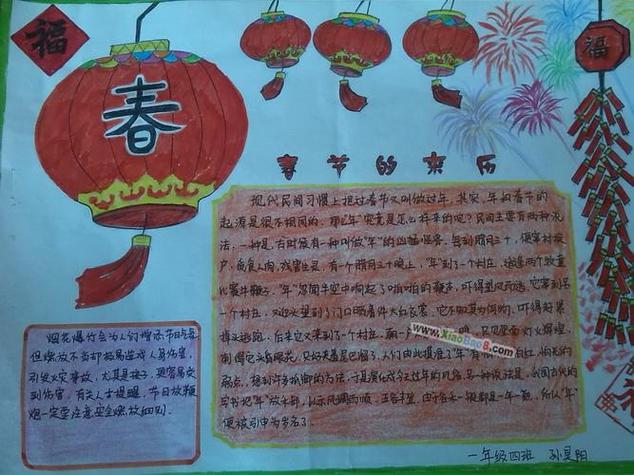 福
春
福
春节的来历
现代民间习惯上把过春节又叫做过年。其实，年和春节的
起源是很不相同的。那么"年"究竟是怎么样来的呢？民间主要有两种说
法：一种是，古时候有一种叫做"年"的凶猛怪兽，每到腊月三十，便窜村挨
户，觅食人肉，残害生灵。有一个腊月三十晚上，"年"到了一个村庄，适逢两个牧童
比赛牛鞭子。"年"忽闻半空中响起了啪啪的鞭声，吓得望风而逃。它窜到另
一个村庄，又迎头望到了门口晒着件大红衣裳，它不知其为何物，吓得赶紧
掉头逃跑。后来它又来到了一个村庄，朝一 只见里面灯火辉煌，
刺得它头昏眼花，只好夹着尾巴溜了。人们由此摸准了"年"有 怕光的
弱点，想到许多抵御的方法，于是演化成今天过年的风俗。另一种说法是，我国古代的
字书把"年"放禾部，以示风调雨顺，五谷丰登。由于谷禾一般都是一年一熟，所以"年"
便被引申为岁名了。
烟花爆竹会为人们增添节日
但燃放不当却极易造成人身伤害，
引发火灾事故，尤其是孩子，更容易受
到伤害，有关人士提醒，节日放鞭
炮一定要注意安全燃放细则。
www.XiaoBao8.com
一年级四班 孙昊阳